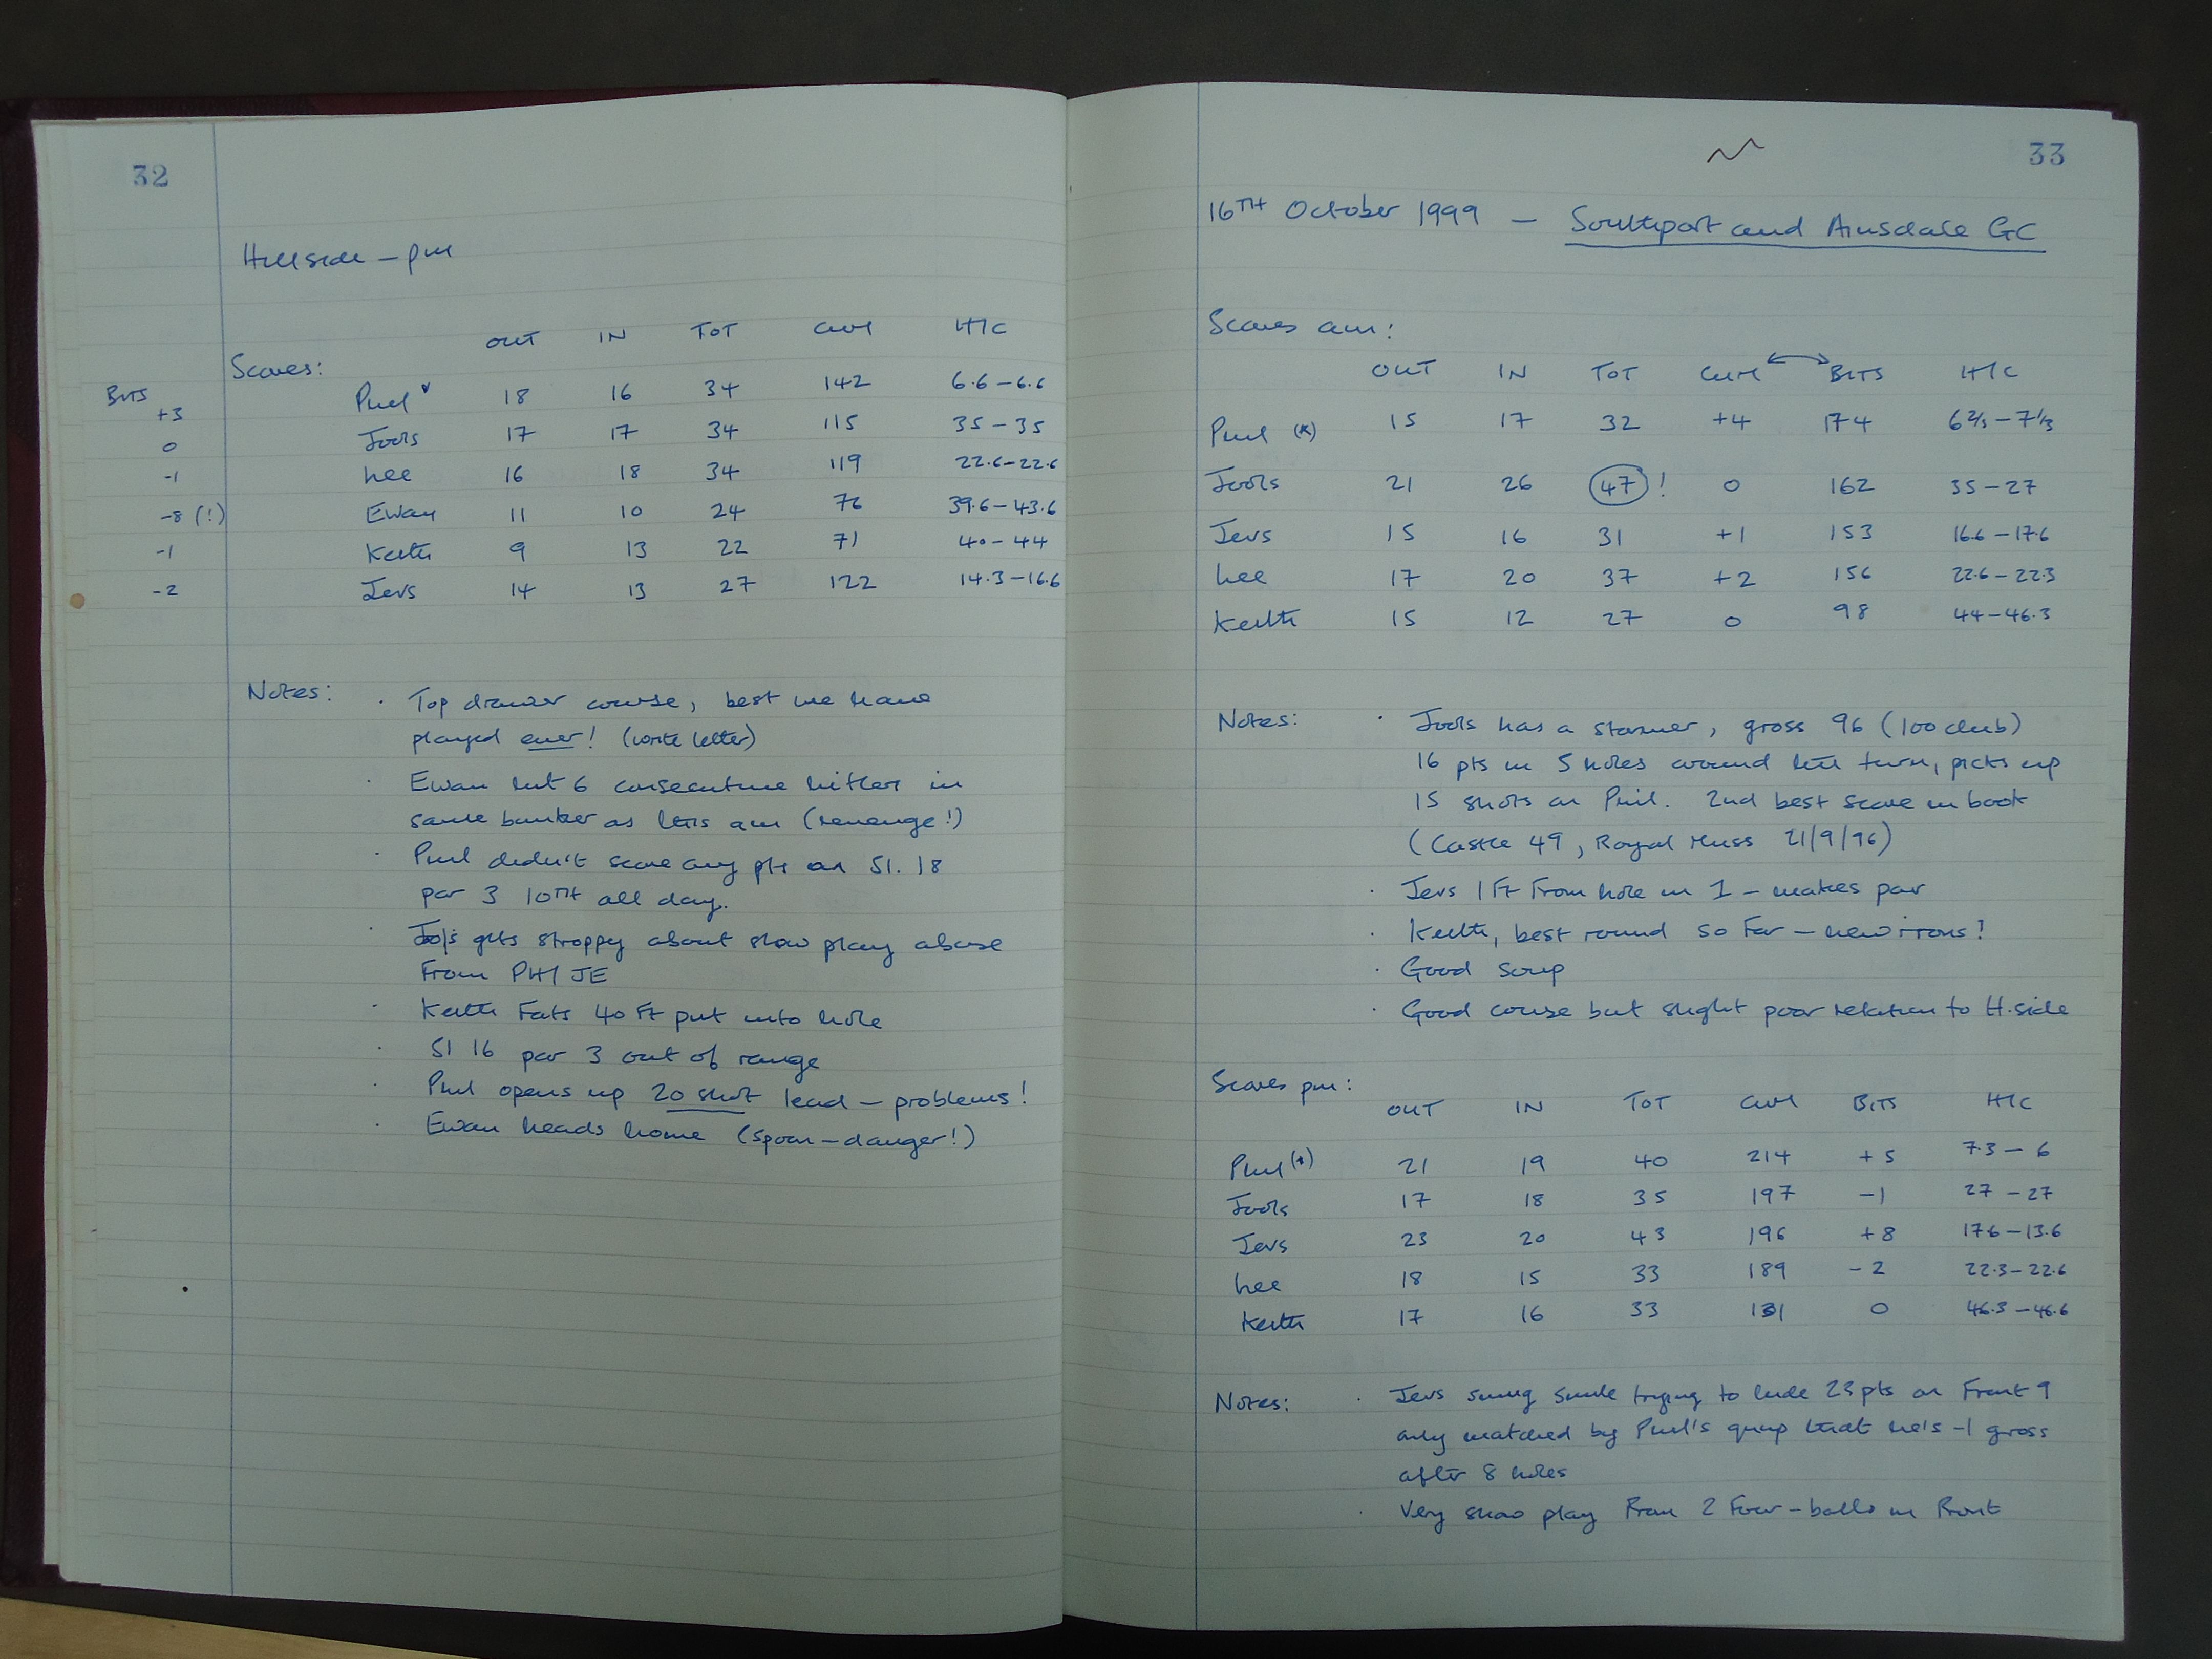 32
Hillside - pm
OUT IN TOT CUM H'C
Scores:
BITS
+3 Phil * 18 16 34 142 6.6 - 6.6
0 Jools 17 17 34 115 35 - 35
-1 Lee 16 18 34 119 22.6 - 22.6
-8 (!) Ewan 11 10 24 76 39.6 - 43.6
-1 Keith 9 13 22 71 40 - 44
-2 Jevs 14 13 27 122 14.3 - 16.6
Notes: · Top drawer course, best we have
played ever! (write letter)
· Ewan hit 6 consecutive hitlers in
same bunker as this am (revenge!)
· Phil didn't score any pts on SI. 18
par 3 10TH all day.
· Jools gets stroppy about slow play abuse
From PH/JE
· Keith Fats 40 Ft put into hole
· SI 16 par 3 out of range
· Phil opens up 20 shot lead - problems!
· Ewan heads home (spoon - danger!)
33
16TH October 1999 - Southport and Ainsdale GC
Scores am:
OUT IN TOT CUM ↔ BITS H'C
Phil (*) 15 17 32 +4 174 6 2/3 - 7 1/3
Jools 21 26 47 ! 0 162 35 - 27
Jevs 15 16 31 +1 153 16.6 - 17.6
Lee 17 20 37 +2 156 22.6 - 22.3
Keith 15 12 27 0 98 44 - 46.3
Notes: · Jools has a stormer, gross 96 (100 club)
16 pts in 5 holes around the turn, picks up
15 shots on Phil. 2nd best score in book
(Castle 49, Royal Muss 21/9/96)
· Jevs 1 Ft From hole in 1 - makes par
· Keith, best round so far - new irons!
· Good soup
· Good course but slight poor relation to H.side
Scores pm:
OUT IN TOT CUM BITS H'C
Phil (*) 21 19 40 214 +5 7.3 - 6
Jools 17 18 35 197 -1 27 - 27
Jevs 23 20 43 196 +8 17.6 - 13.6
Lee 18 15 33 189 -2 22.3 - 22.6
Keith 17 16 33 131 0 46.3 - 46.6
Notes: · Jevs smug smile trying to hide 23 pts on Front 9
only matched by Phil's quip that he's -1 gross
after 8 holes
· Very slow play From 2 Four-balls in Front